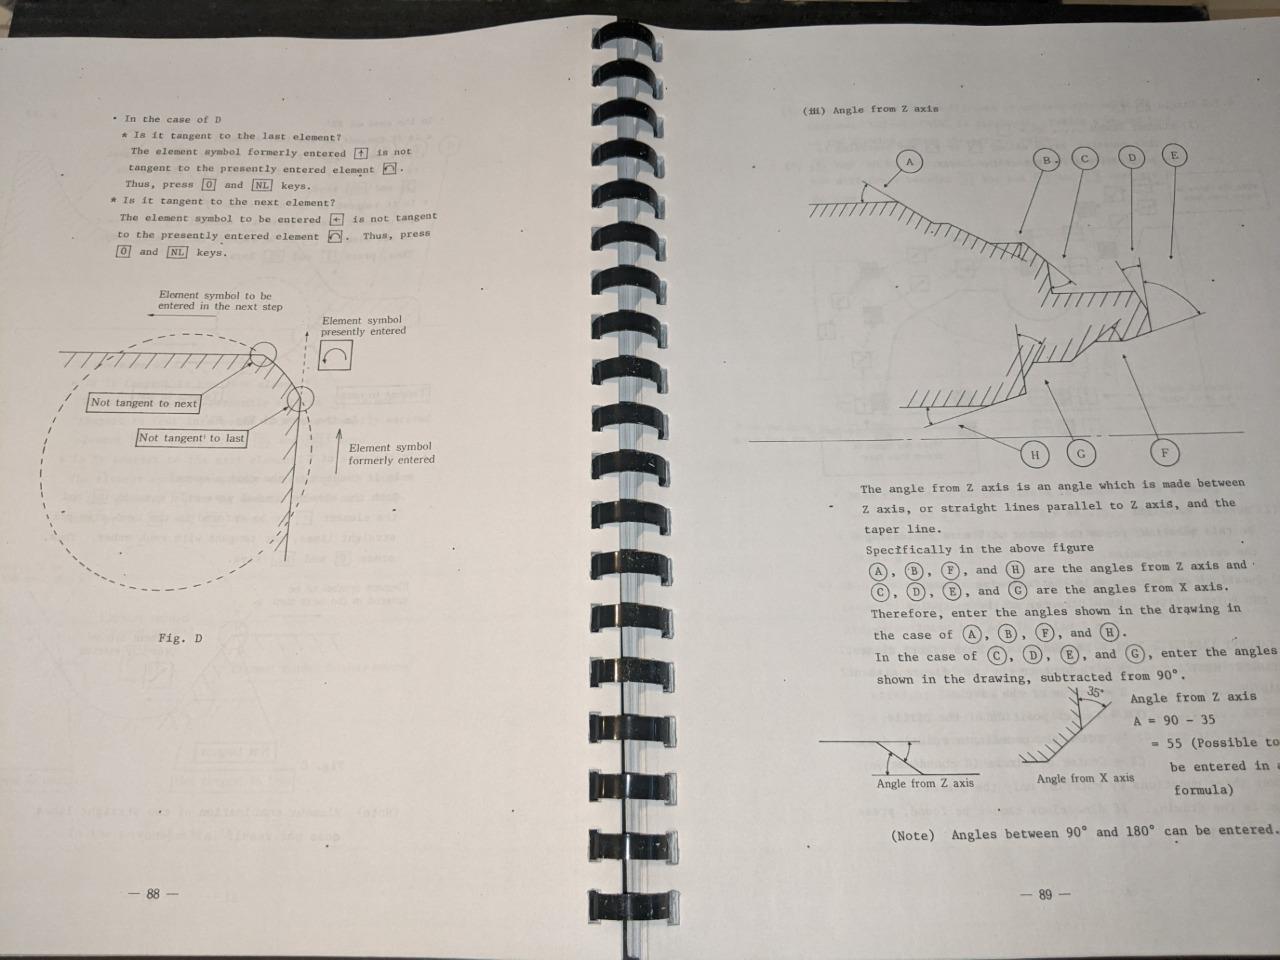 • In the case of D
* Is it tangent to the last element?
The element symbol formerly entered ↑ is not
tangent to the presently entered element ↶.
Thus, press 0 and NL keys.
* Is it tangent to the next element?
The element symbol to be entered ← is not tangent
to the presently entered element ↶. Thus, press
0 and NL keys.
Element symbol to be
entered in the next step
Element symbol
presently entered
Not tangent to next
Not tangent to last
Element symbol
formerly entered
Fig. D
— 88 —
(iii) Angle from Z axis
A B C D E
H G F
The angle from Z axis is an angle which is made between
Z axis, or straight lines parallel to Z axis, and the
taper line.
Specifically in the above figure
A, B, F, and H are the angles from Z axis and
C, D, E, and G are the angles from X axis.
Therefore, enter the angles shown in the drawing in
the case of A, B, F, and H.
In the case of C, D, E, and G, enter the angles
shown in the drawing, subtracted from 90°.
35°
Angle from Z axis
A = 90 - 35
= 55 (Possible to
be entered in a
formula)
Angle from Z axis
Angle from X axis
(Note) Angles between 90° and 180° can be entered.
— 89 —